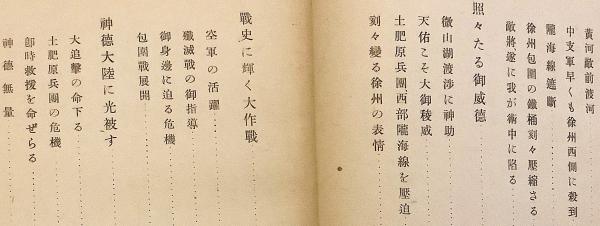 黃河敵前渡河
中支軍早くも徐州西側に殺到
隴海線遮斷
徐州包圍の鐵桶刻々壓縮さる
敵將遂に我が術中に陷る
照々たる御威德
微山湖渡涉に神助
天佑こそ大御稜威
土肥原兵團、西部隴海線を壓迫
刻々變る徐州の表情
戰史に輝く大作戰
空軍の活躍
殲滅戰の御指導
御身邊に迫る危機
包圍戰展開
神德大陸に光被す
大追擊の命下る
土肥原兵團の危機
卽時救援を命ぜらる
神德無量